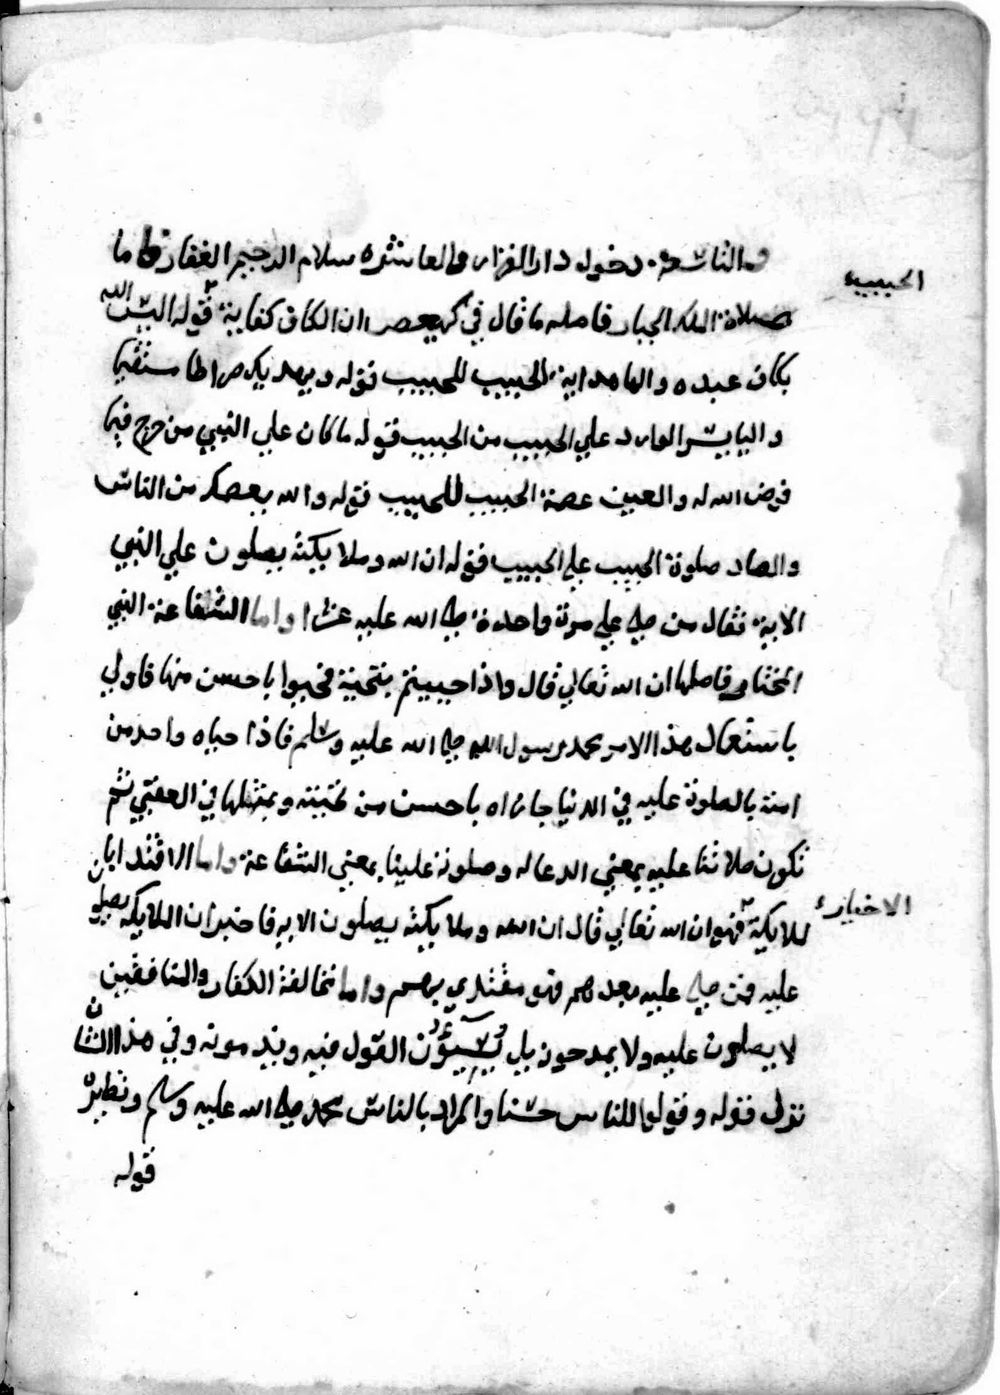 والتاسعة دخول دار القرار والعاشرة سلام الرحيم الغفار واما
صلاة الملك الجبار فاصله ما قال في كهيعص ان الكاف كفاية قوله اليس الله
بكاف عبده والها هداية الحبيب للحبيب قوله ويهديك صراطا مستقيما
واليا يسر الوارد علي الحبيب من الحبيب قوله ما كان علي النبي من حرج فيما
فرض الله له والعين عصمة الحبيب للحبيب قوله والله يعصمك من الناس
والصاد صلوة الحبيب علي الحبيب قوله ان الله وملايكته يصلون علي النبي
الاية فقال من صلي علي مرة واحدة صلي الله عليه عشرا واما الشفاعة النبي
المختار فاصلها ان الله تعالي قال واذا حييتم بتحية فحيوا باحسن منها فاولي
باستعمال هذا الامر محمد رسول الله صلي الله عليه وسلم فاذا حياه واحد من
امته بالصلوة عليه في الدنيا جازاه باحسن من تحيته وبمثلها في العقبي ثم
تكون صلاتنا عليه بمعني الدعا له وصلوته علينا بمعني الشفاعة واما الاقتدا بان
للملايكة فهو ان الله تعالي قال ان الله وملايكته يصلون الاية فاخبر ان الملايكة يصلو
عليه فمن صلي عليه بعدهم فهو مقتدي بهم واما مخالفة الكفار والمنافقين
لا يصلون عليه ولا يمدحون بل يسيؤن القول فيه ويذمونه وفي هذا الشان
نزل قوله وقولوا للناس حسنا والمراد بالناس محمد صلي الله عليه وسلم ونظيره
قوله
الحبيب
الاخيار